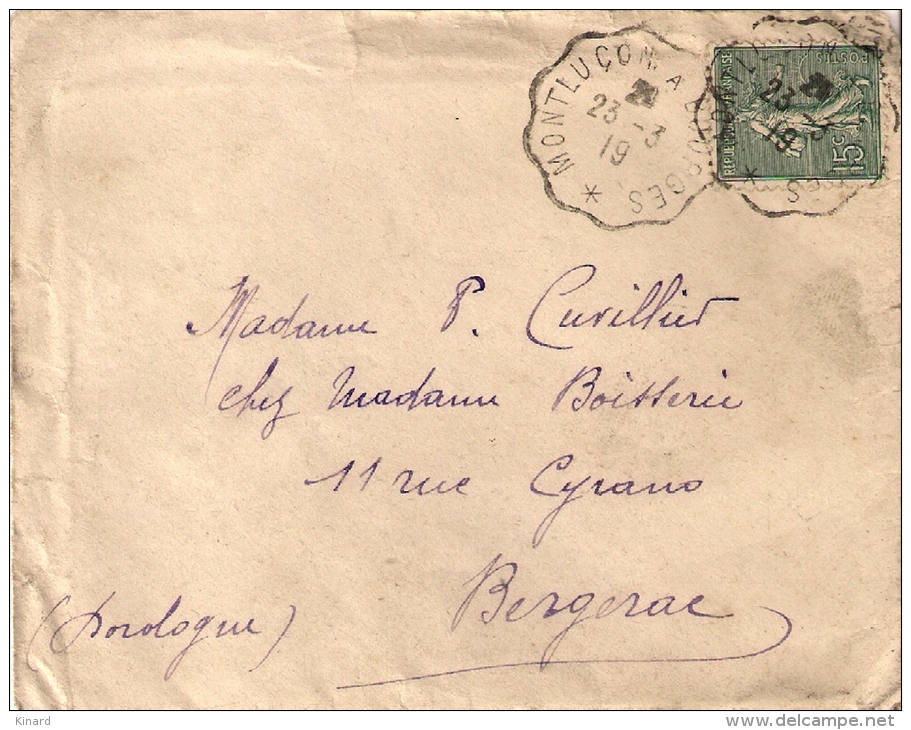 MONTLUÇON A BOURGES
23 -3
19
REPUBLIQUE FRANÇAISE
POSTES
15c
Madame P. Cuvillier
chez Madame Boisserie
11 rue Cyrano
Bergerac
(Dordogne)
Kinard
www.delcampe.net